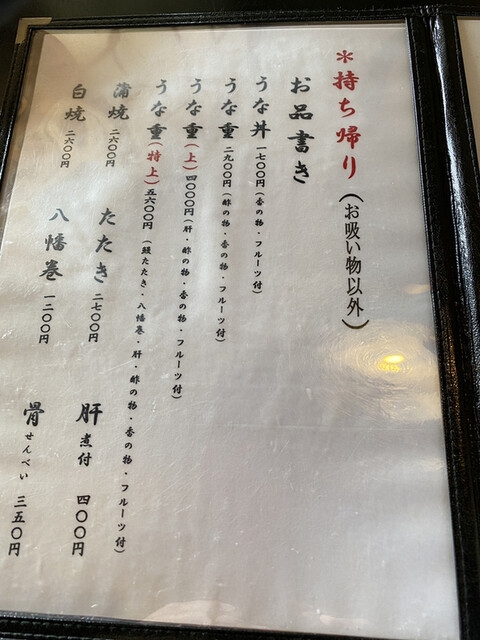 ＊持ち帰り（お吸い物以外）
お品書き
うな丼 一七〇〇円（香の物・フルーツ付）
うな重 二九〇〇円（酢の物・香の物・フルーツ付）
うな重（上）四〇〇〇円（肝・酢の物・香の物・フルーツ付）
うな重（特上）五六〇〇円（鰻たたき・八幡巻・肝・酢の物・香の物・フルーツ付）
蒲焼 二六〇〇円
たたき 二七〇〇円
肝煮付 四〇〇円
白焼 二六〇〇円
八幡巻 一二〇〇円
骨せんべい 三五〇円